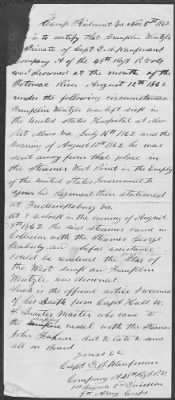 Camp Piedmont Va Nov 5th 1862
is to certify that Franklin Wentzle
Private of Capt D. B. Kaufmans
Company A of the 48th Regt P. Vols
was drowned at the mouth of the
Potomac River August 12th 1862
under the following circumstances
Franklin Wentzle was left sick in
the United States Hospital at New
Port News Va. July 16th 1862 and the
morning of August 12th 1862 he was
sent away from that place in
the Steamer West Point in the employ
of the United States Government to
rejoin his Regiment then stationed
at Fredericksburg Va.
At 8 o.clock in the evening of August
1862 the said steamer came in
Collision with the Steamer George
Peabody and before assistance
could be rendered the
of the West sunk and Franklin
Wentzle was drowned.
Such is the official notice I received
of his death from Capt Hall W.
Quarter Master who came to
the vessel with the Steamer
John but to late to save
all on board
Capt D. B. Kaufman
Company A 48th Regt P. V.
2nd Division
9th Army Corps